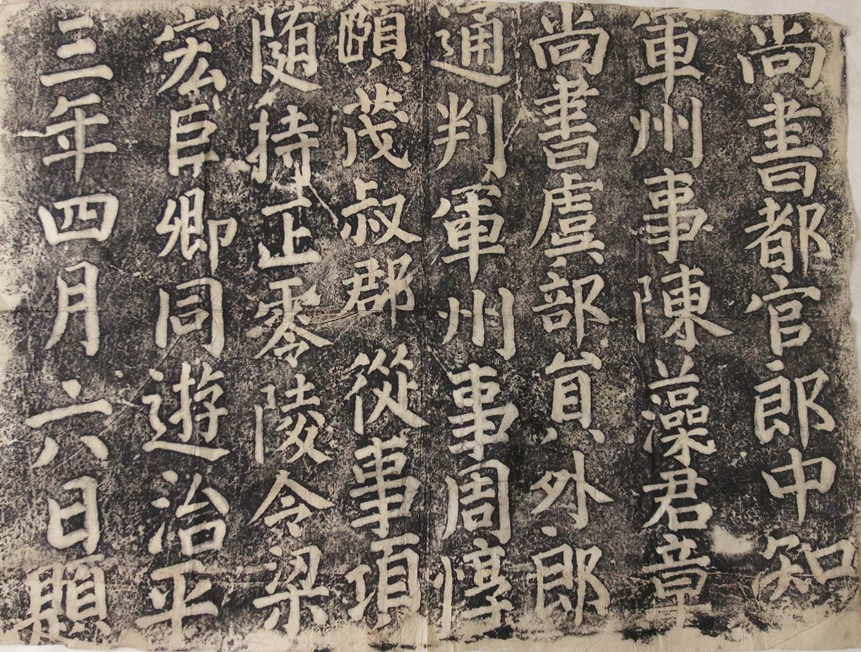 尚書都官郎中知
軍州事陳藻君章
尚書虞部員外郎
通判軍州事周惇
頤茂叔郡從事項
随持正零陵令梁
宏臣卿同遊治平
三年四月六日題